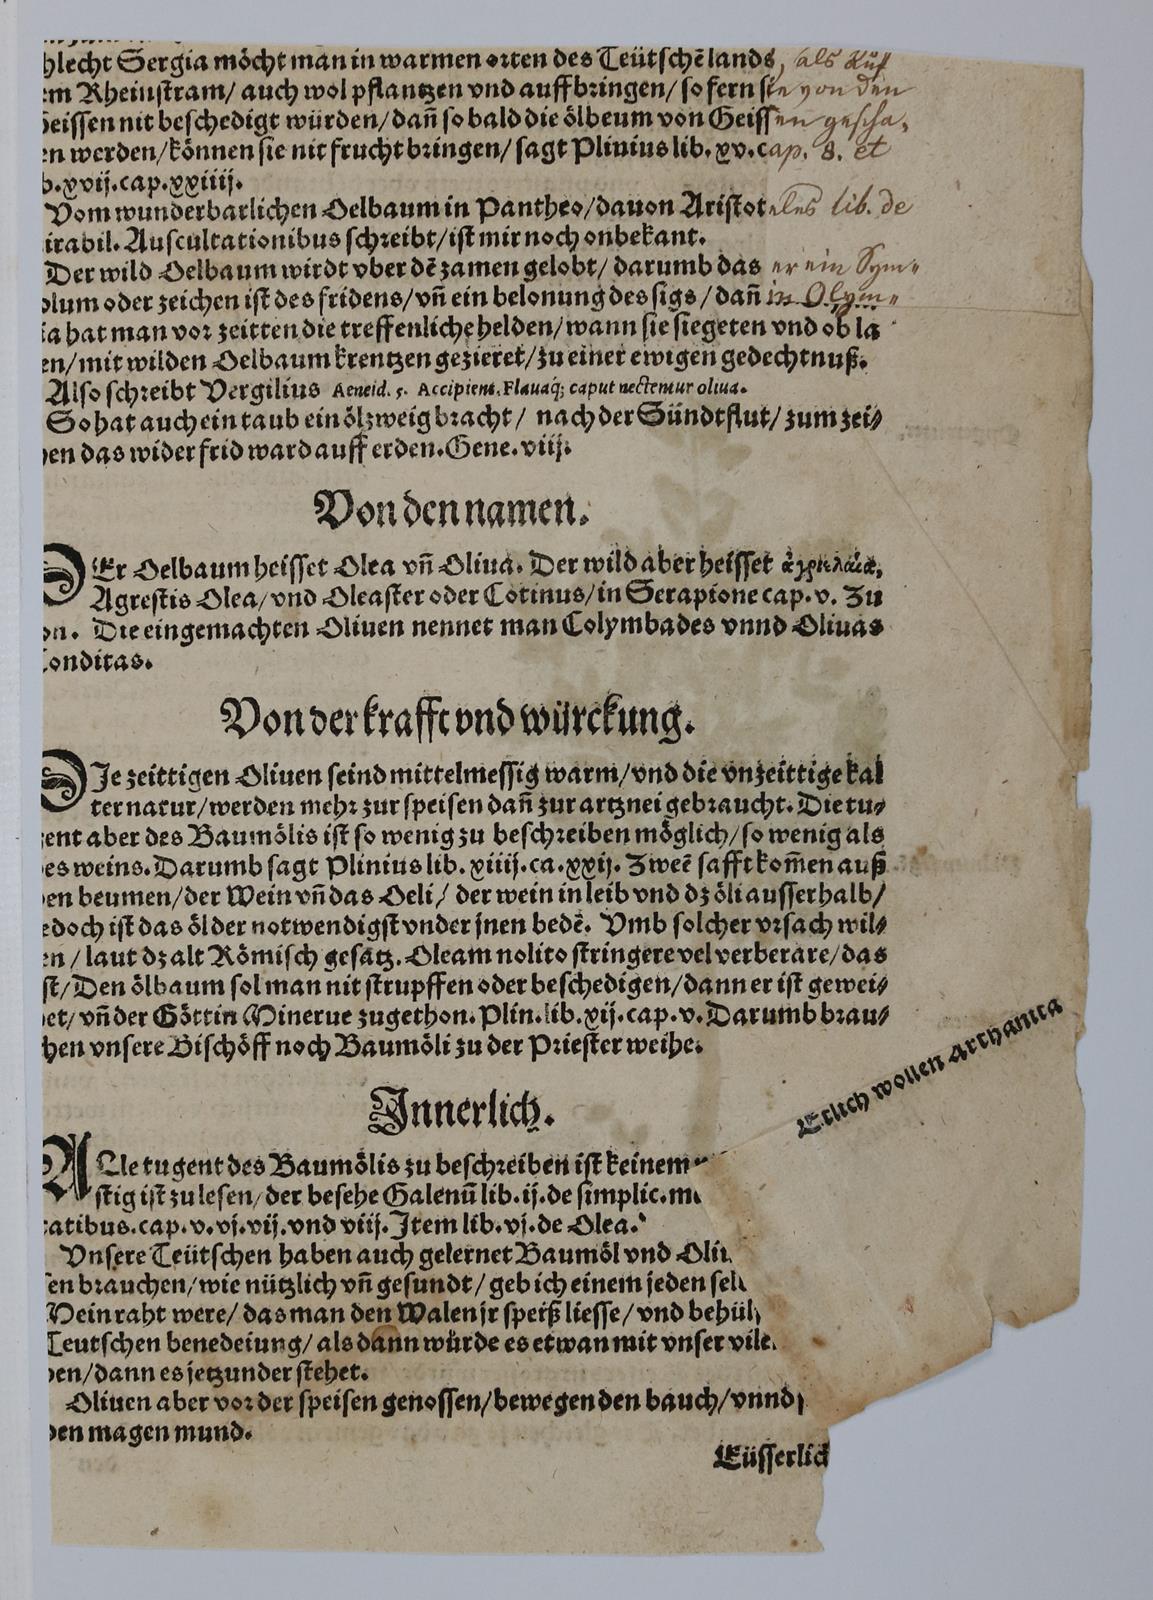 hlecht Sergia möcht man in warmen orten des Teütschē lands, als Auf
em Rheinstram/ auch wol pflantzen vnd auffbringen/ so fern sie von den
Geissen nit beschedigt würden/ dañ so bald die ölbeum von Geissen gescha,
en werden/ können sie nit frucht bringen/ sagt Plinius lib. xv. cap. 8. et
b. xvij. cap. xxiiij.
Vom wunderbarlichen Oelbaum in Pantheo/ dauon Aristoteles lib. de
irabil. Auscultationibus schreibt/ ist mir noch onbekant.
Der wild Oelbaum wirdt vber dē zamen gelobt/ darumb das er ein Sym⸗
olum oder zeichen ist des fridens/ vñ ein belonung des sigs/ dañ in Olym⸗
ia hat man vor zeitten die treffenliche helden/ wann sie siegeten vnd ob la
en/ mit wilden Oelbaum krentzen gezieret/ zu einer ewigen gedechtnuß.
Also schreibt Vergilius Aeneid. 5. Accipient. Flauaq; caput nectemur oliua.
So hat auch ein taub ein ölzweig bracht/ nach der Sündtflut/ zum zei⸗
hen das wider frid ward auff erden. Gene. viij.
Von den namen.
DEr Oelbaum heisset Olea vñ Oliua. Der wild aber heisset ἀγριελαία,
Agrestis Olea/ vnd Oleaster oder Cotinus/ in Serapione cap. v. Zu
on. Die eingemachten Oliuen nennet man Colymbades vnnd Oliuas
Conditas.
Von der krafft vnd würckung.
DJe zeittigen Oliuen seind mittelmessig warm/ vnd die vnzeittige kal
ter natur/ werden mehr zur speisen dañ zur artznei gebraucht. Die tu⸗
gent aber des Baumölis ist so wenig zu beschreiben möglich/ so wenig als
es weins. Darumb sagt Plinius lib. xiiij. ca. xxij. Zweē safft kom̄en auß
en beumen/ der Wein vñ das Oeli/ der wein in leib vnd dz öli ausserhalb/
edoch ist das öl der notwendigst vnder jnen bedē. Vmb solcher vrsach wil⸗
en/ laut dz alt Römisch gesatz. Oleam nolito stringere vel verberare/ das
st/ Den ölbaum sol man nit strupffen oder beschedigen/ dann er ist gewei⸗
et/ vñ der Göttin Minerue zugethon. Plin. lib. xij. cap. v. Darumb brau⸗
hen vnsere Bischöff noch Baumöli zu der Priester weihe.
Etlich wollen Arthanita
Jnnerlich.
ALle tugent des Baumölis zu beschreiben ist keinem
stig ist zu lesen/ der besehe Galenū lib. ij. de simplic. m
atibus. cap. v. vj. vij. vnd viij. Jtem lib. vj. de Olea.
Vnsere Teütschen haben auch gelernet Baumöl vnd Oli
sen brauchen/ wie nützlich vñ gesundt/ geb ich einem jeden sel
Mein raht were/ das man den Walen jr speiß liesse/ vnd behül
Teutschen benedeiung/ als dann würde es etwan mit vnser vile
en/ dann es jetzunder stehet.
Oliuen aber vor der speisen genossen/ bewegen den bauch/ vnnd
den magen mund.
Eüsserlich